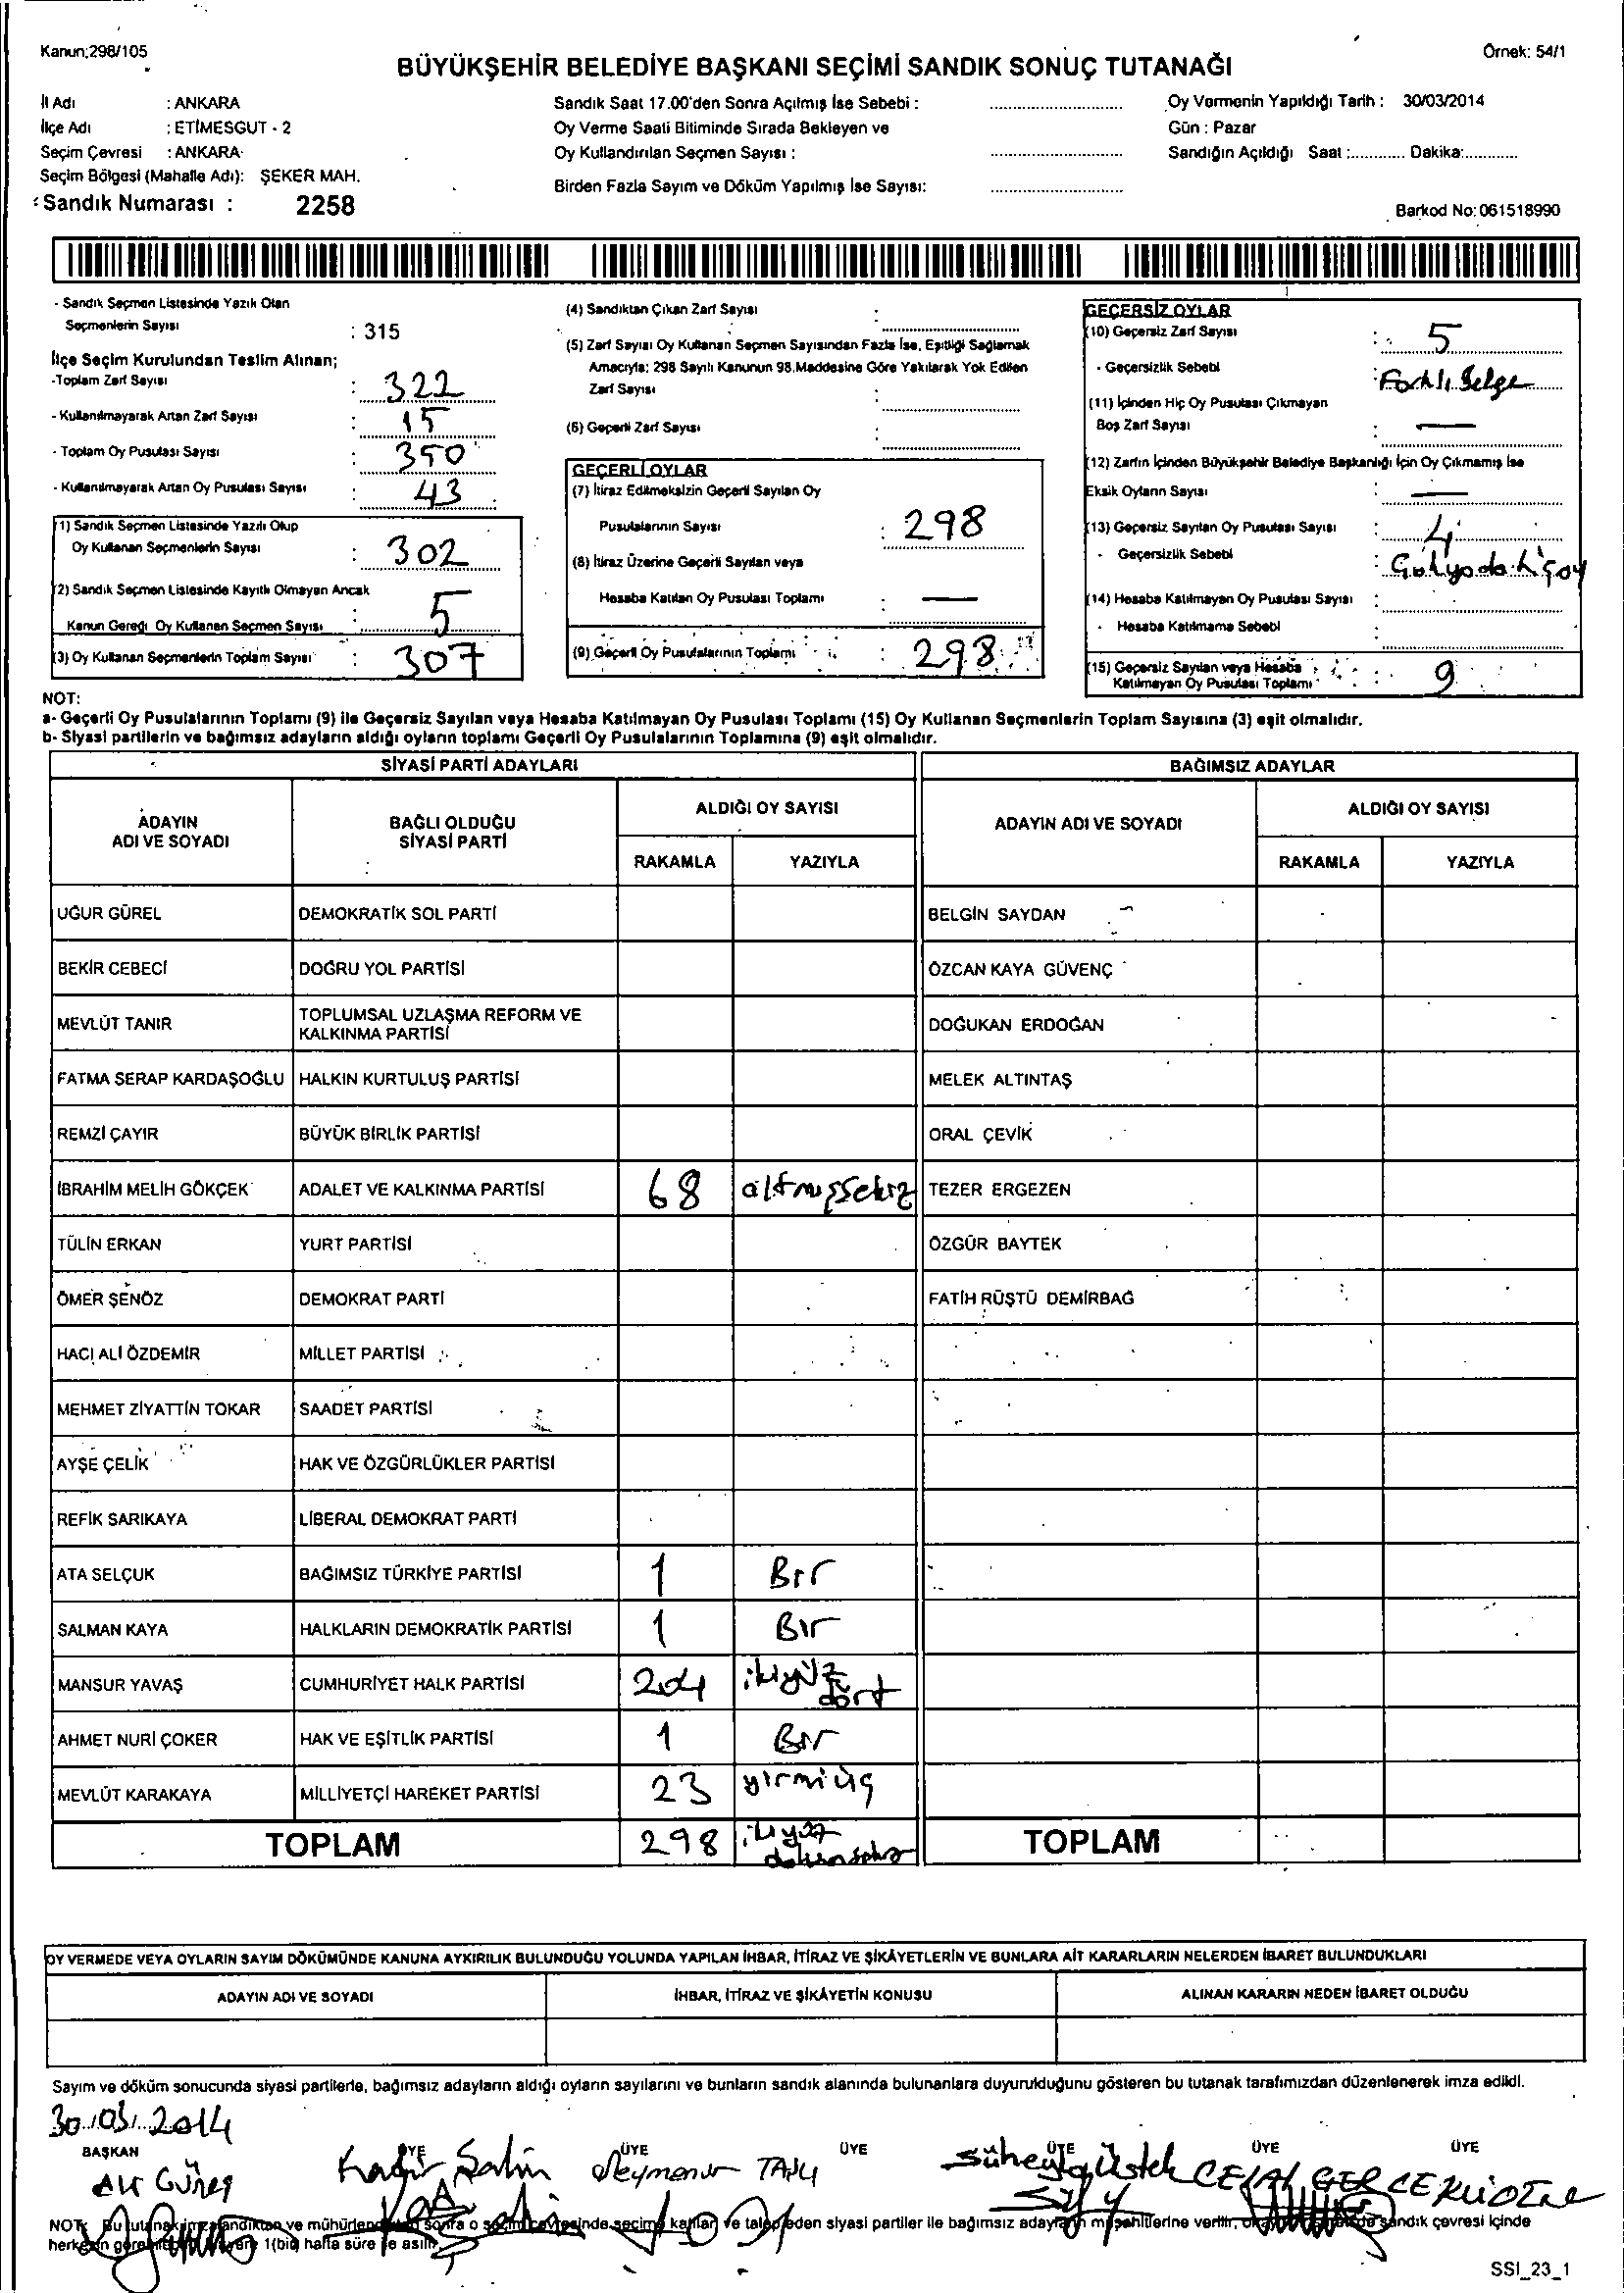 Kanun;298/105
Örnek: 54/1
BÜYÜKŞEHİR BELEDİYE BAŞKANI SEÇİMİ SANDIK SONUÇ TUTANAĞI
İl Adı : ANKARA
İlçe Adı : ETİMESGUT - 2
Seçim Çevresi : ANKARA
Seçim Bölgesi (Mahalle Adı): ŞEKER MAH.
Sandık Numarası : 2258
Sandık Saat 17.00'den Sonra Açılmış İse Sebebi :
Oy Verme Saati Bitiminde Sırada Bekleyen ve
Oy Kullandırılan Seçmen Sayısı :
Birden Fazla Sayım ve Döküm Yapılmış İse Sayısı:
Oy Vermenin Yapıldığı Tarih : 30/03/2014
Gün : Pazar
Sandığın Açıldığı Saat :............ Dakika:............
Barkod No: 061518990
- Sandık Seçmen Listesinde Yazılı Olan
Seçmenlerin Sayısı : 315
İlçe Seçim Kurulundan Teslim Alınan;
-Toplam Zarf Sayısı : 322
- Kullanılmayarak Artan Zarf Sayısı : 15
- Toplam Oy Pusulası Sayısı : 350
- Kullanılmayarak Artan Oy Pusulası Sayısı : 43
(1) Sandık Seçmen Listesinde Yazılı Olup
Oy Kullanan Seçmenlerin Sayısı : 302
(2) Sandık Seçmen Listesinde Kayıtlı Olmayan Ancak
Kanun Gereği Oy Kullanan Seçmen Sayısı : 5
(3) Oy Kullanan Seçmenlerin Toplam Sayısı : 307
(4) Sandıktan Çıkan Zarf Sayısı :
(5) Zarf Sayısı Oy Kullanan Seçmen Sayısından Fazla İse, Eşitliği Sağlamak
Amacıyla; 298 Sayılı Kanunun 98.Maddesine Göre Yakılarak Yok Edilen
Zarf Sayısı :
(6) Geçerli Zarf Sayısı :
GEÇERLİ OYLAR
(7) İtiraz Edilmeksizin Geçerli Sayılan Oy
Pusulalarının Sayısı : 298
(8) İtiraz Üzerine Geçerli Sayılan veya
Hesaba Katılan Oy Pusulası Toplamı : —
(9) Geçerli Oy Pusulalarının Toplamı : 298
GEÇERSİZ OYLAR
(10) Geçersiz Zarf Sayısı : 5
- Geçersizlik Sebebi : Farklı Belge
(11) İçinden Hiç Oy Pusulası Çıkmayan
Boş Zarf Sayısı : —
(12) Zarfın İçinden Büyükşehir Belediye Başkanlığı İçin Oy Çıkmamış İse
Eksik Oyların Sayısı : —
(13) Geçersiz Sayılan Oy Pusulası Sayısı : 4
- Geçersizlik Sebebi :
(14) Hesaba Katılmayan Oy Pusulası Sayısı :
- Hesaba Katılmama Sebebi :
(15) Geçersiz Sayılan veya Hesaba
Katılmayan Oy Pusulası Toplamı : 9
NOT:
a- Geçerli Oy Pusulalarının Toplamı (9) ile Geçersiz Sayılan veya Hesaba Katılmayan Oy Pusulası Toplamı (15) Oy Kullanan Seçmenlerin Toplam Sayısına (3) eşit olmalıdır.
b- Siyasi partilerin ve bağımsız adayların aldığı oyların toplamı Geçerli Oy Pusulalarının Toplamına (9) eşit olmalıdır.
SİYASİ PARTİ ADAYLARI
BAĞIMSIZ ADAYLAR
ADAYIN ADI VE SOYADI
BAĞLI OLDUĞU SİYASİ PARTİ
ALDIĞI OY SAYISI
RAKAMLA YAZIYLA
ADAYIN ADI VE SOYADI
ALDIĞI OY SAYISI
RAKAMLA YAZIYLA
UĞUR GÜREL DEMOKRATİK SOL PARTİ BELGİN SAYDAN
BEKİR CEBECİ DOĞRU YOL PARTİSİ ÖZCAN KAYA GÜVENÇ
MEVLÜT TANIR TOPLUMSAL UZLAŞMA REFORM VE KALKINMA PARTİSİ DOĞUKAN ERDOĞAN
FATMA SERAP KARDAŞOĞLU HALKIN KURTULUŞ PARTİSİ MELEK ALTINTAŞ
REMZİ ÇAYIR BÜYÜK BİRLİK PARTİSİ ORAL ÇEVİK
İBRAHİM MELİH GÖKÇEK ADALET VE KALKINMA PARTİSİ 68 altmışsekiz TEZER ERGEZEN
TÜLİN ERKAN YURT PARTİSİ ÖZGÜR BAYTEK
ÖMER ŞENÖZ DEMOKRAT PARTİ FATİH RÜŞTÜ DEMİRBAĞ
HACI ALİ ÖZDEMİR MİLLET PARTİSİ
MEHMET ZİYATTİN TOKAR SAADET PARTİSİ
AYŞE ÇELİK HAK VE ÖZGÜRLÜKLER PARTİSİ
REFİK SARIKAYA LİBERAL DEMOKRAT PARTİ
ATA SELÇUK BAĞIMSIZ TÜRKİYE PARTİSİ 1 Bir
SALMAN KAYA HALKLARIN DEMOKRATİK PARTİSİ 1 Bir
MANSUR YAVAŞ CUMHURİYET HALK PARTİSİ 204 ikiyüz dört
AHMET NURİ ÇOKER HAK VE EŞİTLİK PARTİSİ 1 Bir
MEVLÜT KARAKAYA MİLLİYETÇİ HAREKET PARTİSİ 23 yirmiüç
TOPLAM 298 ikiyüz doksansekiz TOPLAM
OY VERMEDE VEYA OYLARIN SAYIM DÖKÜMÜNDE KANUNA AYKIRILIK BULUNDUĞU YOLUNDA YAPILAN İHBAR, İTİRAZ VE ŞİKÂYETLERİN VE BUNLARA AİT KARARLARIN NELERDEN İBARET BULUNDUKLARI
ADAYIN ADI VE SOYADI İHBAR, İTİRAZ VE ŞİKÂYETİN KONUSU ALINAN KARARIN NEDEN İBARET OLDUĞU
Sayım ve döküm sonucunda siyasi partilerle, bağımsız adayların aldığı oyların sayılarını ve bunların sandık alanında bulunanlara duyurulduğunu gösteren bu tutanak tarafımızdan düzenlenerek imza edildi.
30.03.2014
BAŞKAN ÜYE ÜYE ÜYE ÜYE ÜYE ÜYE
Ali Güneş Kadir Şahin
NOT: Bu tutanak imzalandıktan ve mühürlendikten sonra o seçim çevresinde seçime katılan ve talep eden siyasi partiler ile bağımsız adayların müşahitlerine verilir, sandık çevresi içinde
1(bir) hafta süre ile asılır.
SSI_23_1